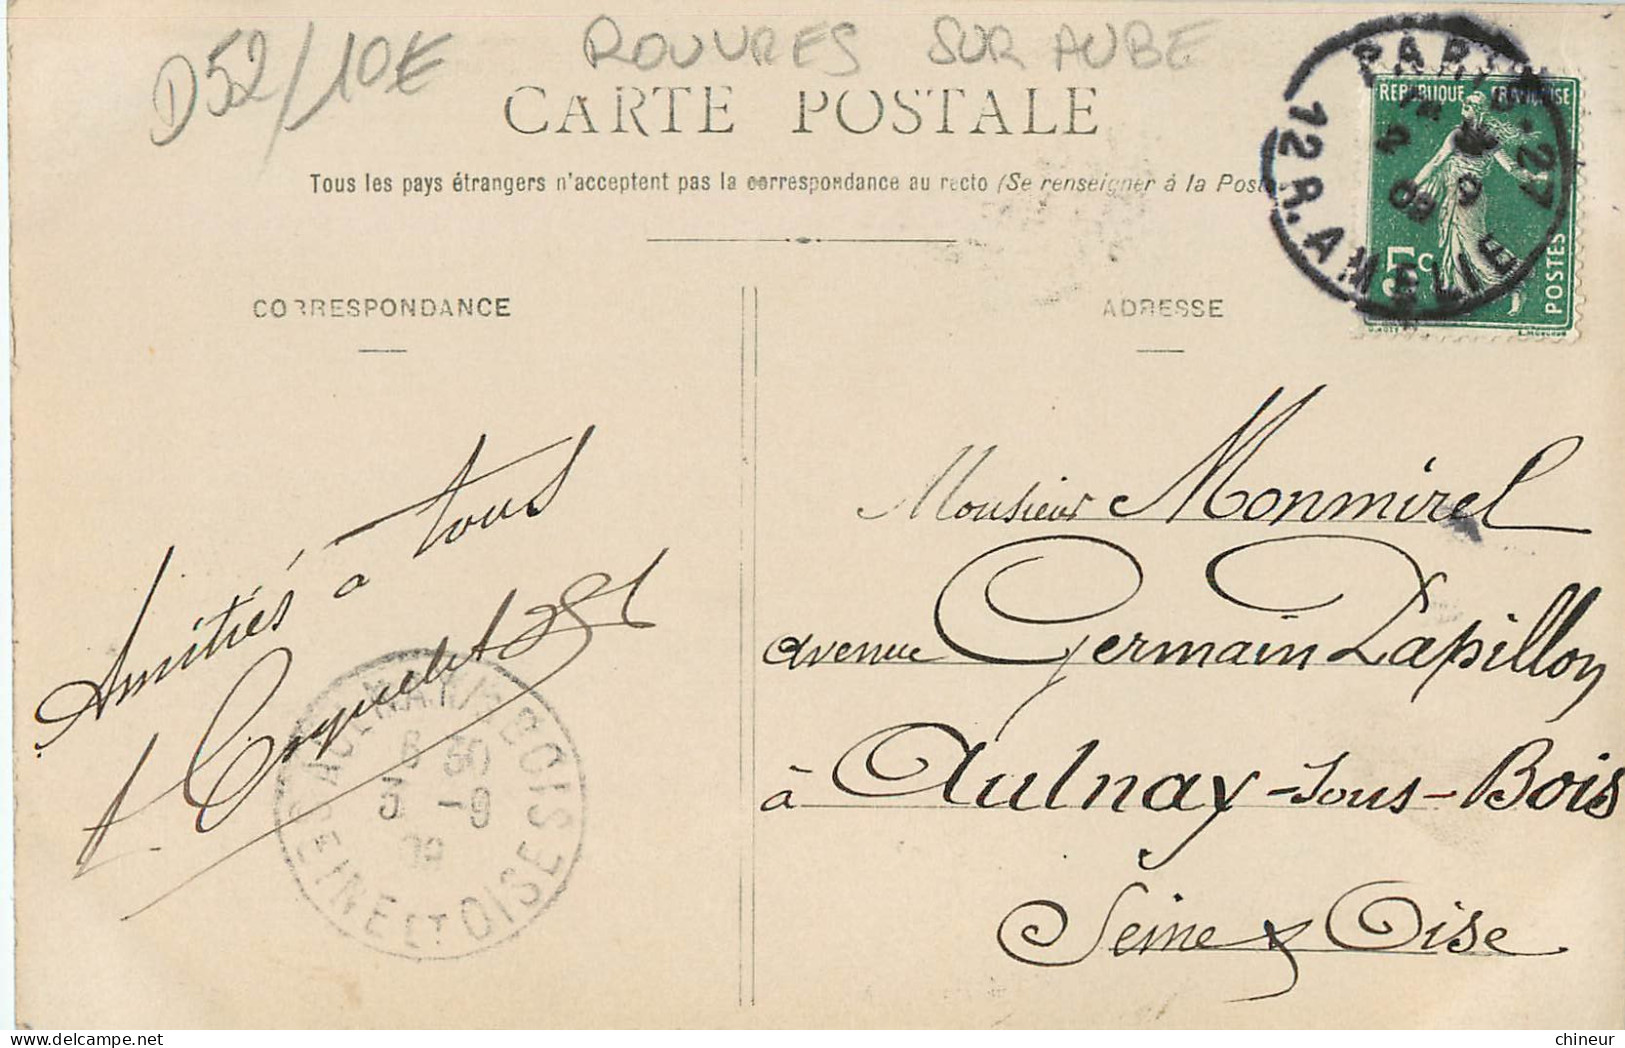 D52/10€
ROUVRES SUR AUBE
CARTE POSTALE
Tous les pays étrangers n'acceptent pas la correspondance au recto (Se renseigner à la Poste
PARIS-27
12 R. AMELIE
REPUBLIQUE FRANÇAISE
5c
POSTES
CORRESPONDANCE
ADRESSE
Amitiés à tous
Monsieur Monmirel
avenue Germain Papillon
à Aulnay-sous-Bois
Seine & Oise
6 30
3 -9
09
SEINE ET OISE
chineur
delcampe.net